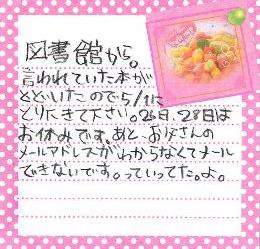 図書館から。
言われていた本が
とどいたので5/1に
とりにきて下さい。26日、28日は
お休みです。あと、お父さんの
メールアドレスがわからなくてメール
できないです。っていってた。よ。